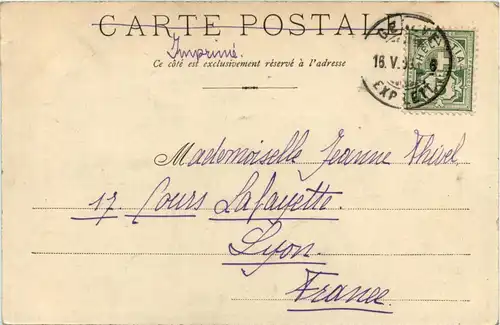 CARTE POSTALE
Imprimé.
Ce côté est exclusivement réservé à l'adresse
16.V.
EXP. LETT
Mademoiselle Jeanne Thivel
17 Cours Lafayette.
Lyon.
France.